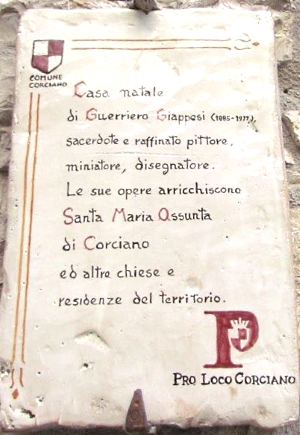 COMUNE
CORCIANO
Casa natale
di Guerriero Giappesi (1885-1977),
sacerdote e raffinato pittore,
miniatore, disegnatore.
Le sue opere arricchiscono
Santa Maria Assunta
di Corciano
ed altre chiese e
residenze del territorio.
P
PRO LOCO CORCIANO